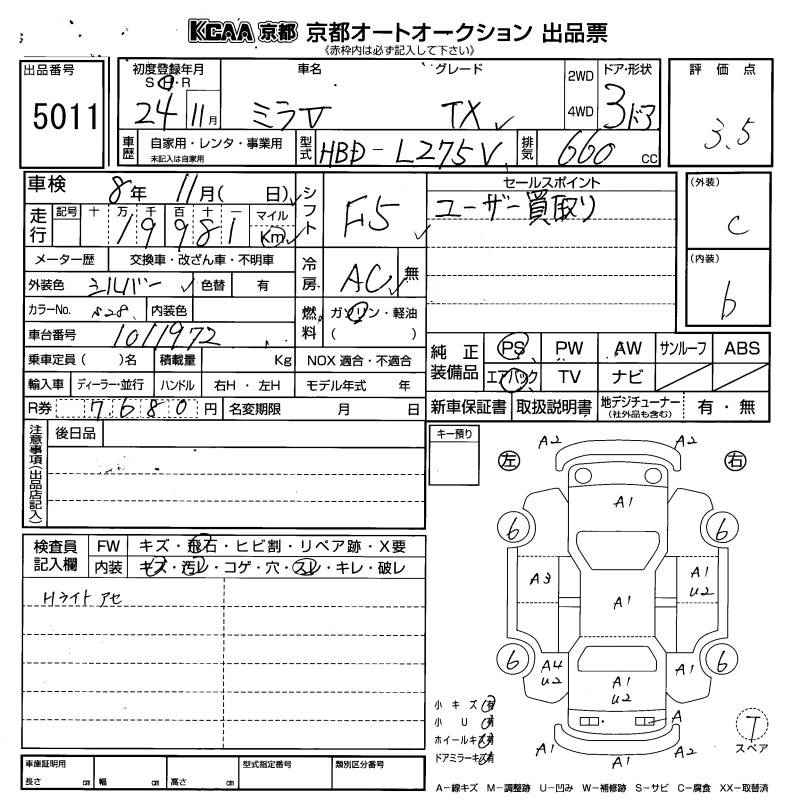 KCAA 京都 京都オートオークション 出品票
《赤枠内は必ず記入して下さい》
出品番号
5011
初度登録年月 車名 グレード 2WD ドア・形状 評価点
S・H・R
24 11月 ミラV TX 4WD 3ドア 3.5
車歴 自家用・レンタ・事業用 型式 HBD-L275V 排気 660 CC
未記入は自家用
車検 8年 11月( 日) シフト F5 セールスポイント (外装)
走行 記号 十 万 千 百 十 一 マイル ユーザー買取り
19981 Km C
メーター歴 交換車・改ざん車・不明車 冷房 AC 無 (内装)
外装色 シルバー 色替 有 b
カラーNo. S28 内装色 燃料 ガソリン・軽油
車台番号 1011972 ( )
乗車定員( )名 積載量 Kg NOX 適合・不適合 純正装備品 PS PW AW サンルーフ ABS
輸入車 ディーラー・並行 ハンドル 右H・左H モデル年式 年 エアバック TV ナビ
R券 7680円 名変期限 月 日 新車保証書 取扱説明書 地デジチューナー 有・無
(社外品も含む)
注意事項(出品店記入) 後日品 キー預り
A2 A2
左 右
A1
6 6
検査員記入欄 FW キズ・飛石・ヒビ割・リペア跡・X要
内装 キズ・汚レ・コゲ・穴・スレ・キレ・破レ
Hライト アセ
A3 A1 A1
U2
6 6
A4 A1 A1
U2 U2
小キズ 有
小U 有
ホイールキズ 有
ドアミラーキズ 有
A
A1 A2
T
スペア
車庫証明用 型式指定番号 類別区分番号
長さ cm 幅 cm 高さ cm
A－線キズ M－調整跡 U－凹み W－補修跡 S－サビ C－腐食 XX－取替済